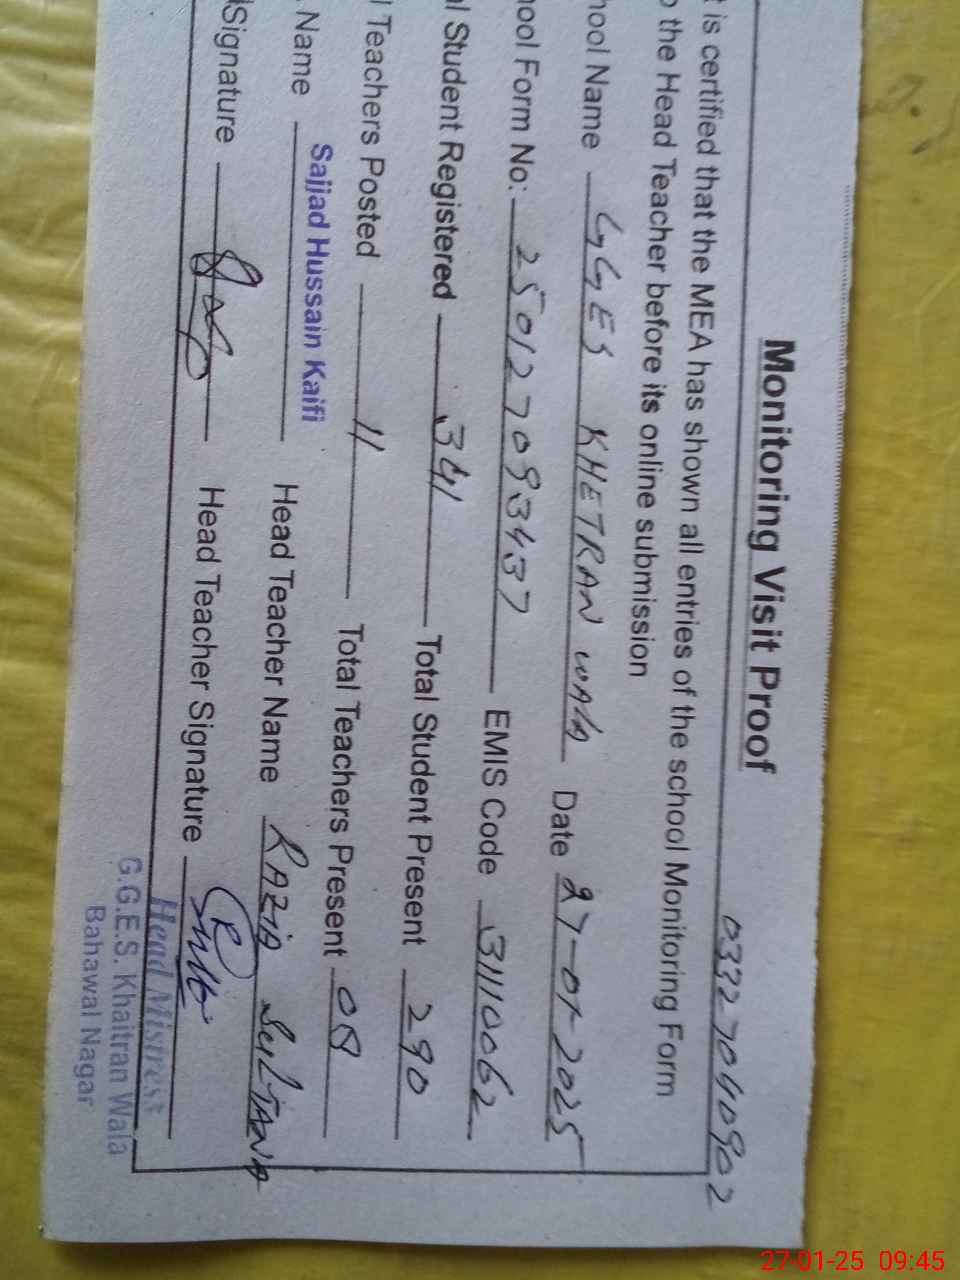 Monitoring Visit Proof
03327040902
t is certified that the MEA has shown all entries of the school Monitoring Form
o the Head Teacher before its online submission
hool Name GGES KHETRAN WALA Date 27-01-2025
hool Form No: 250127093437 EMIS Code 31110062
al Student Registered 341 Total Student Present 290
l Teachers Posted 11 Total Teachers Present 08
Name Sajjad Hussain Kaifi Head Teacher Name RAZIA SULTANA
Signature Head Teacher Signature
Head Mistress
G.G.E.S. Khaitran Wala
Bahawal Nagar
27-01-25 09:45